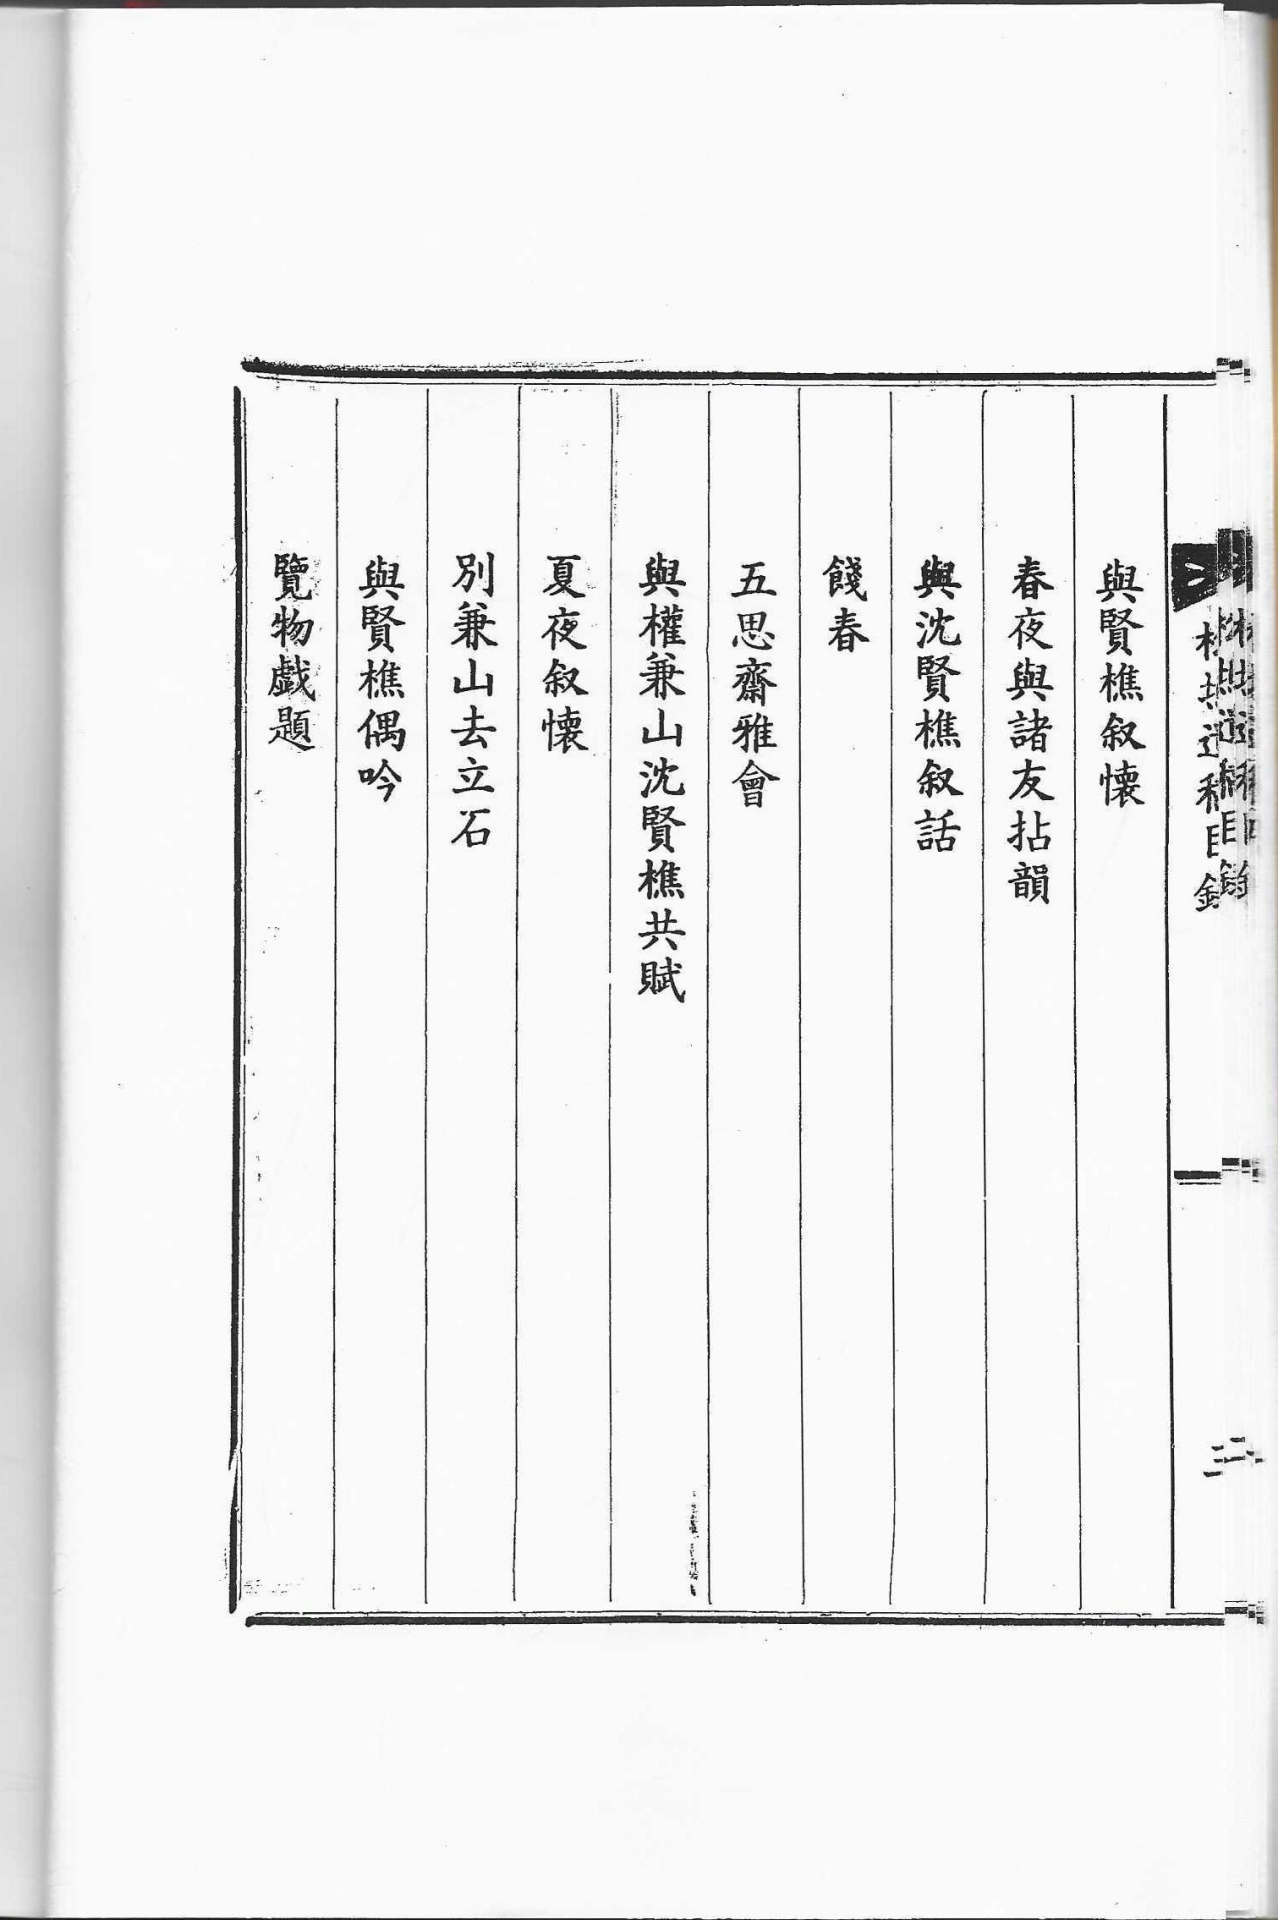 與賢樵叙懷
春夜與諸友拈韻
與沈賢樵叙話
餞春
五思齋雅會
與權兼山沈賢樵共賦
夏夜叙懷
別兼山去立石
與賢樵偶吟
覽物戱題